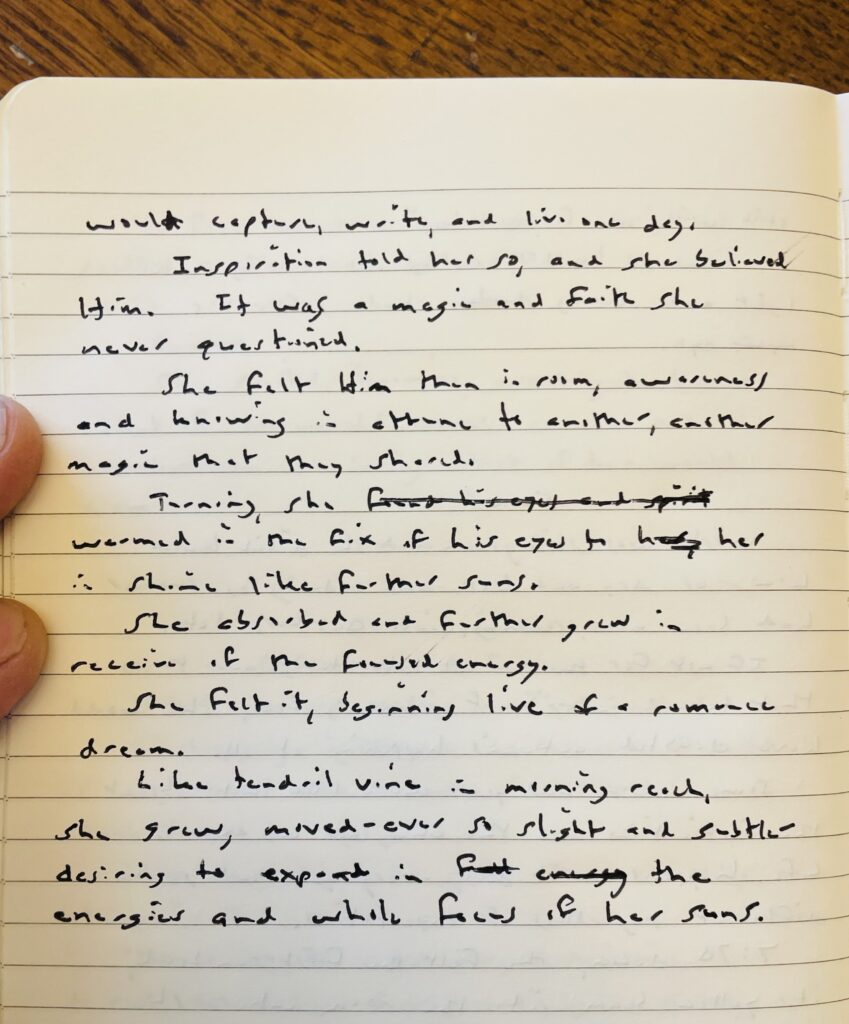 would capture, write, and live one day.
Inspiration told her so, and she believed
Him. It was a magic and faith she
never questioned.
She felt Him then in room, awareness
and knowing in attune to another, another
magic that they shared.
Turning, she found his eyes and spirit
warmed in the fix of his eyes to her
in shine like further suns.
She absorbed and further grew in
receive of the focused energy.
She felt it, beginning live of a romance
dream.
Like tendril vine in morning reach,
she grew, moved-ever so slight and subtle-
desiring to expand in energy the
energies and whole focus of her suns.